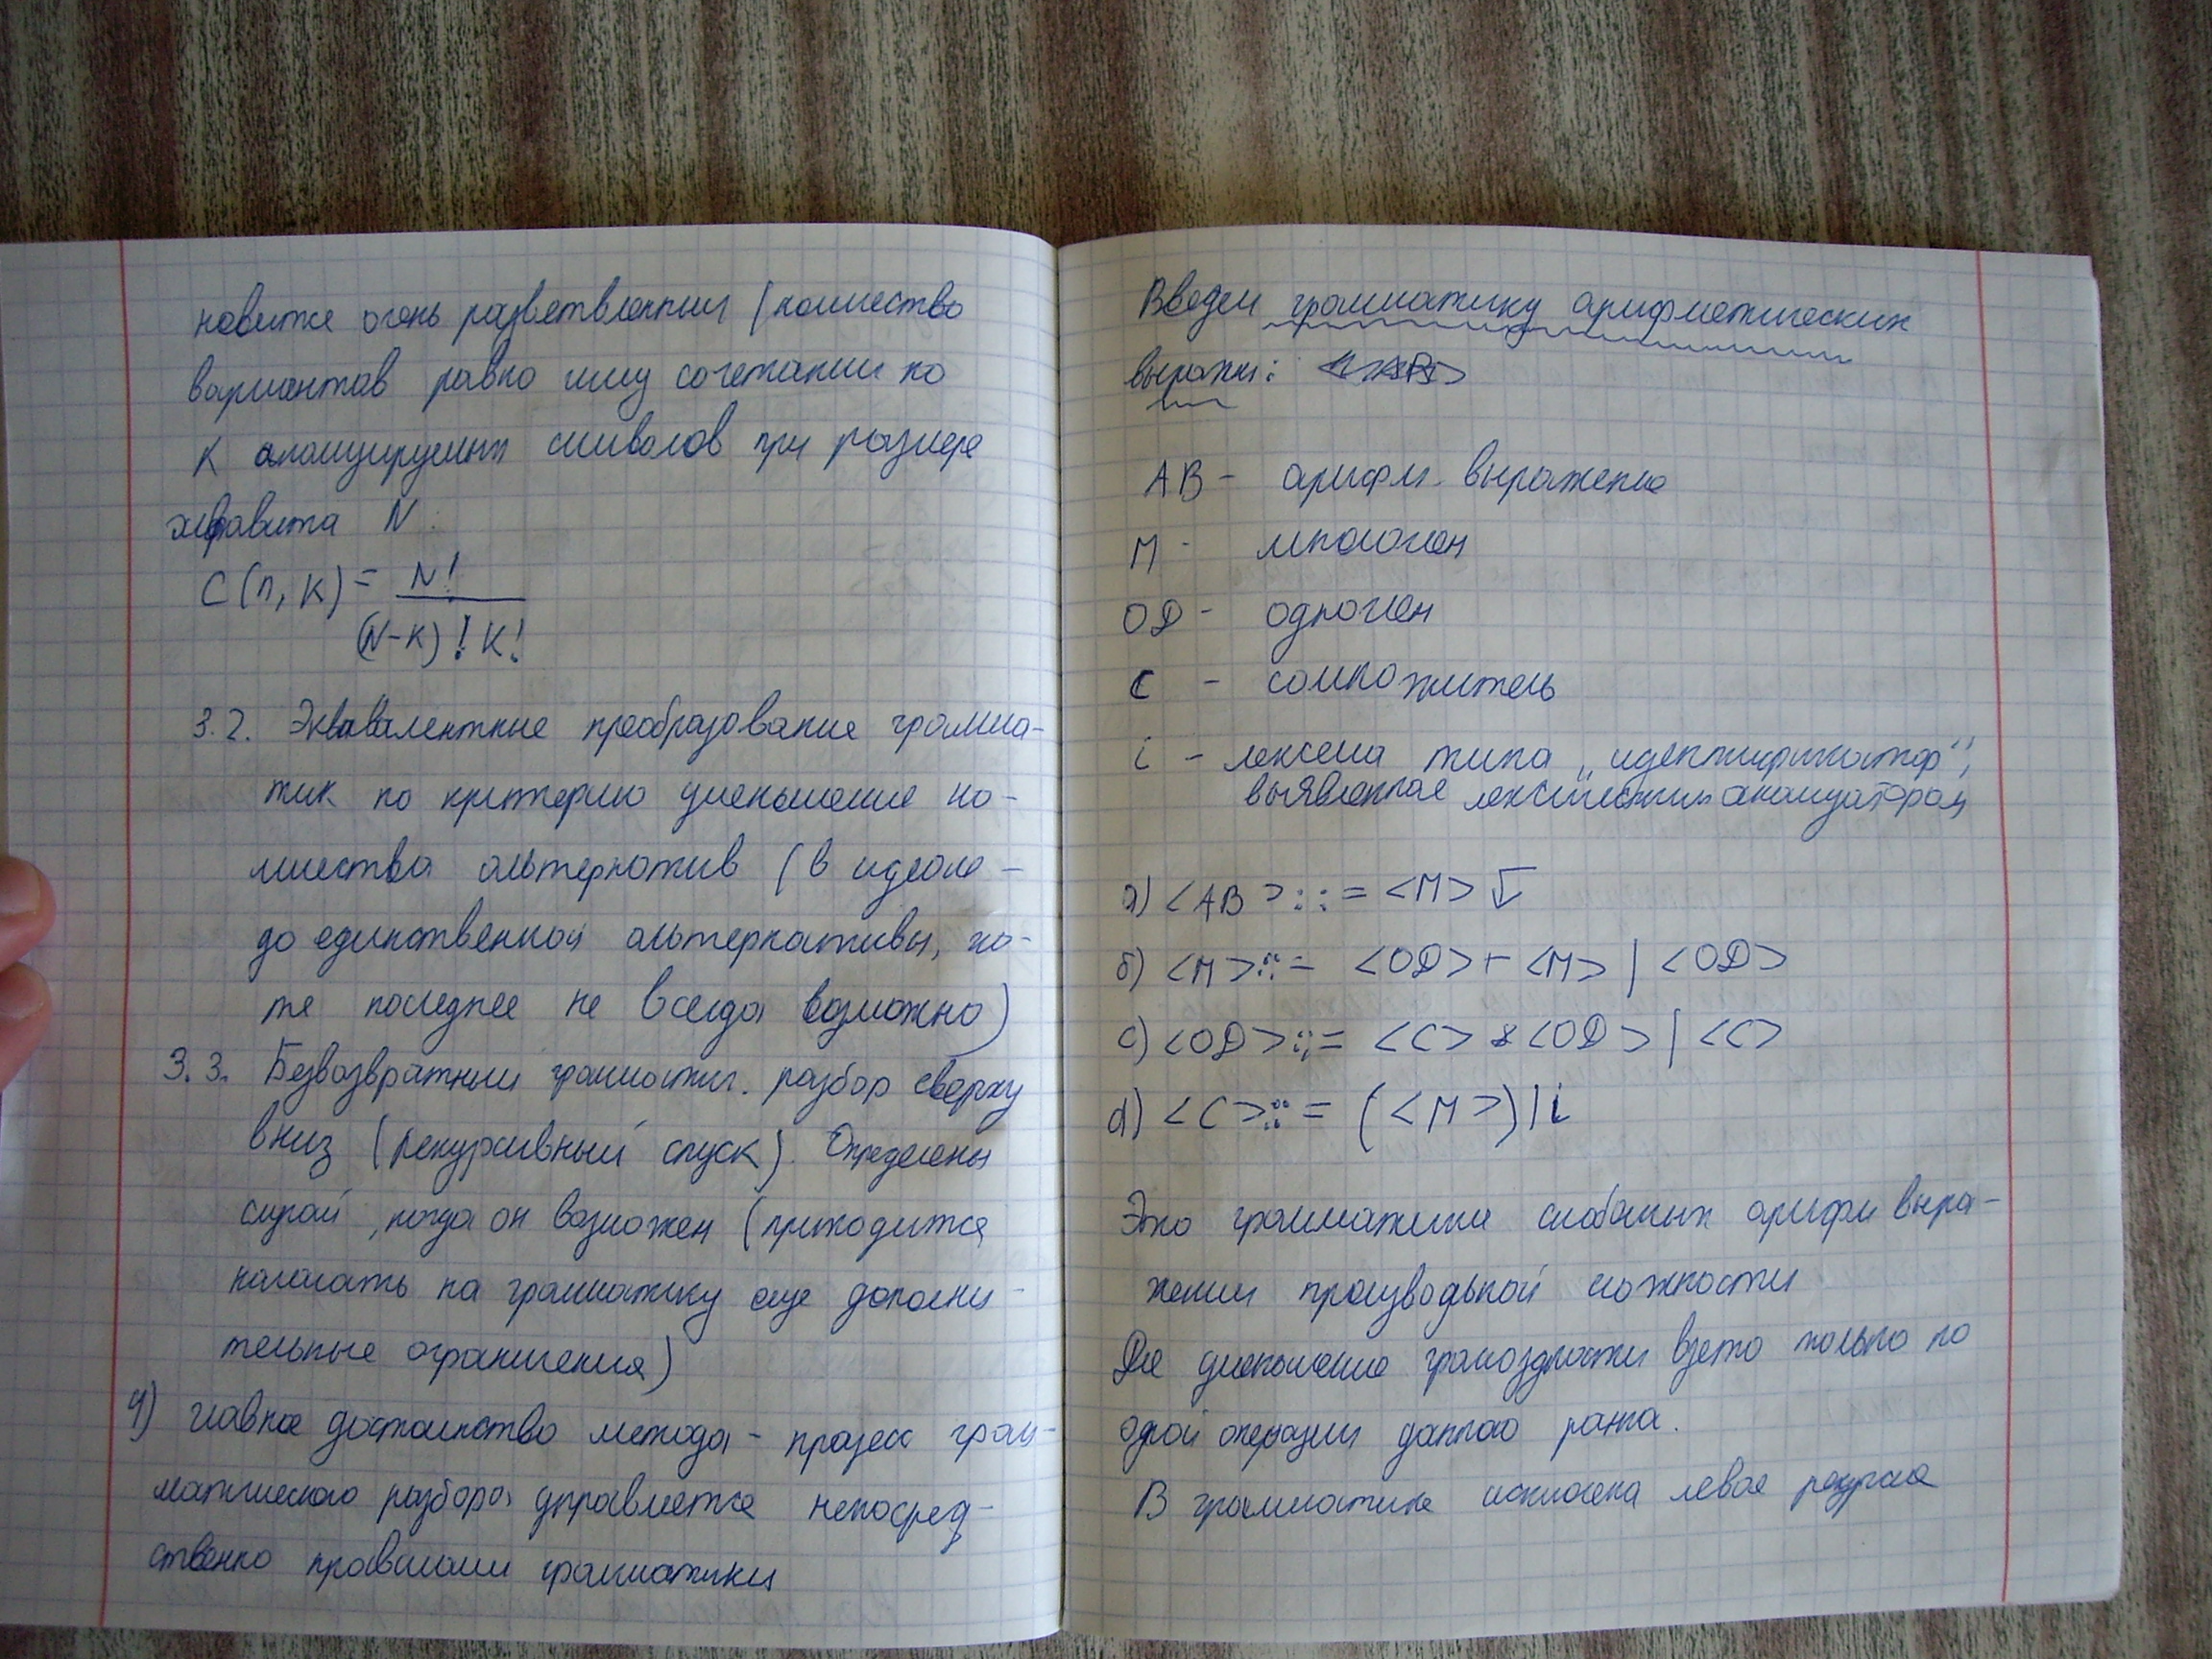 новится очень разветвленным (количество
вариантов равно числу сочетаний по
К анализируемых символов при размере
алфавита N.
C(n,к) = N!
(N-к)! к!
3.2. Эквивалентные преобразование грамма-
тик по критерию уменьшение ко-
личества альтернатив (в идеале -
до единственной альтернативы, хо-
тя последнее не всегда возможно)
3.3. Безвозвратный грамматич. разбор сверху
вниз (рекурсивный спуск). Определены
случай, когда он возможен (приходится
налагать на грамматику еще дополни-
тельные ограничения)
4) главное достоинство метода - процесс грам-
матического разбора управляется непосред-
ственно правилами грамматики
Введем грамматику арифметических
выражен:
АВ - арифм. выражение
М - многочлен
ОД - одночлен
С - сомножитель
i - лексема типа „идентификатор",
выявленная лексическим анализатором
а) <АВ>::= <М>
б) <М>::= <ОД>+<М> | <ОД>
с) <ОД>::= <С>*<ОД> | <С>
d) <С>::= (<М>)|i
Это грамматика скобочных арифм выра-
жений произвольной сложности
Для уменьшение громоздкости взято только по
одной операции данного ранга.
В грамматике исключена левая рекурсия